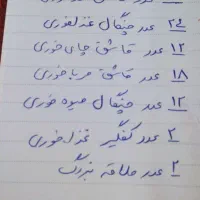 ۲۴ عدد چنگال غذاخوری
۱۲ عدد قاشق چای خوری
۱۸ عدد قاشق مرباخوری
۱۲ عدد چنگال میوه خوری
۲ عدد کفگیر غذاخوری
۲ عدد ملاقه بزرگ